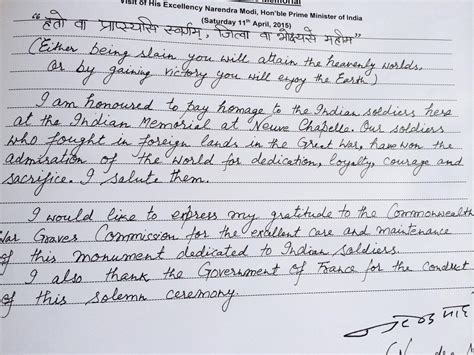 Memorial
Visit of His Excellency Narendra Modi, Hon'ble Prime Minister of India
(Saturday 11th April, 2015)
"हतो वा प्राप्स्यसि स्वर्गम्, जित्वा वा भोक्ष्यसे महीम्"
(Either being slain you will attain the heavenly worlds,
Or by gaining victory you will enjoy the Earth)
I am honoured to pay homage to the Indian soldiers here
at the Indian Memorial at Neuve Chapelle. Our soldiers
who fought in foreign lands in the Great War, have won the
admiration of the world for dedication, loyalty, courage and
sacrifice. I salute them.
I would like to express my gratitude to the Commonwealth
War Graves Commission for the excellent care and maintenance
of this monument dedicated to Indian Soldiers.
I also thank the Government of France for the conduct
of this solemn ceremony.